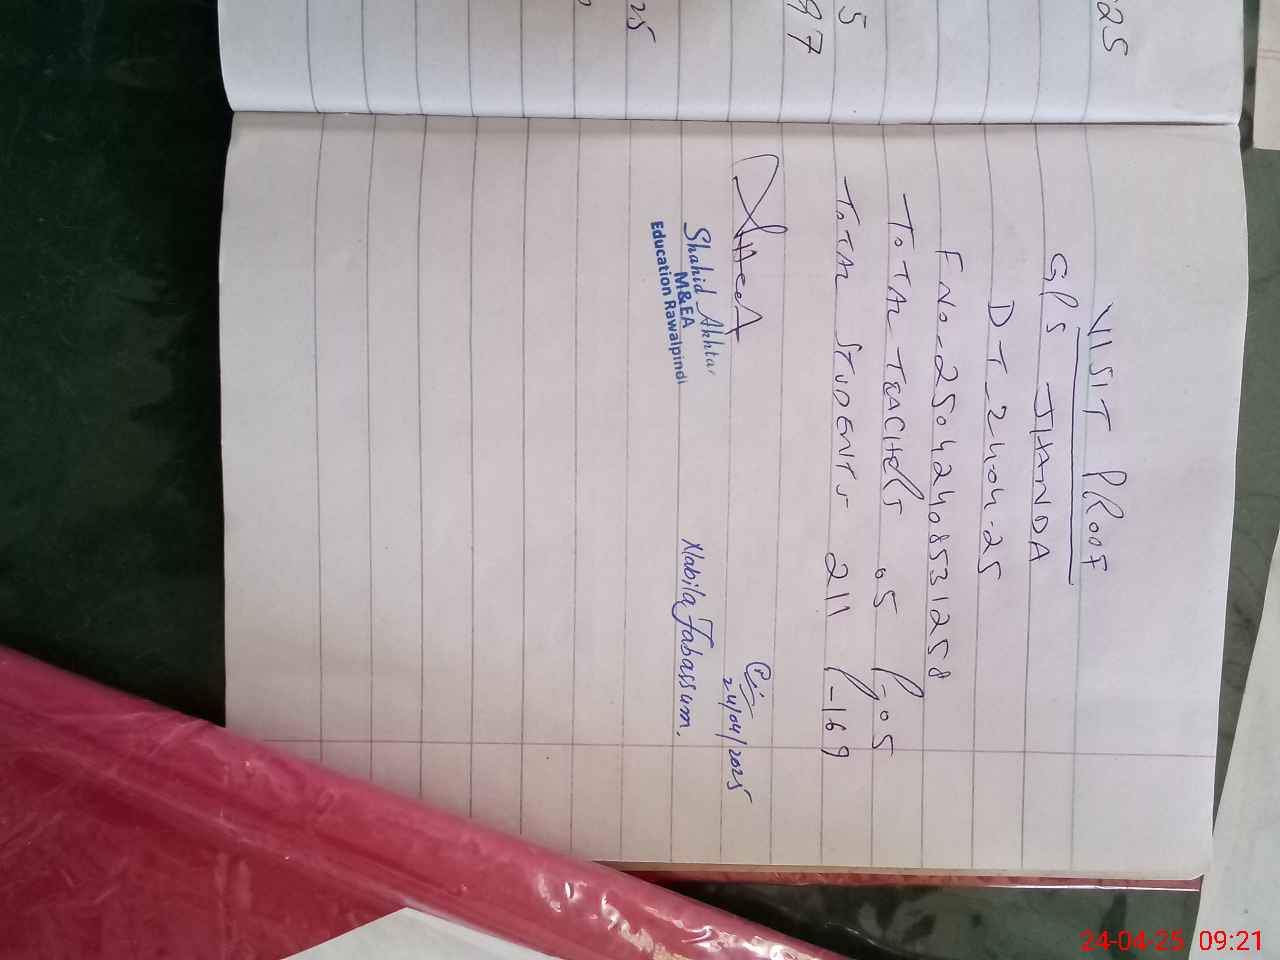 25
5
97
25
VISIT PROOF
GPS JHANDA
DT_24-04-25
FNo-25042408531258
TOTAL TEACHERS 05 P-05
TOTAL STUDENTS 211 P-169
24/04/2025
Shahid Akhtar
M&EA
Education Rawalpindi
Nabila Tabassum.
24-04-25 09:21